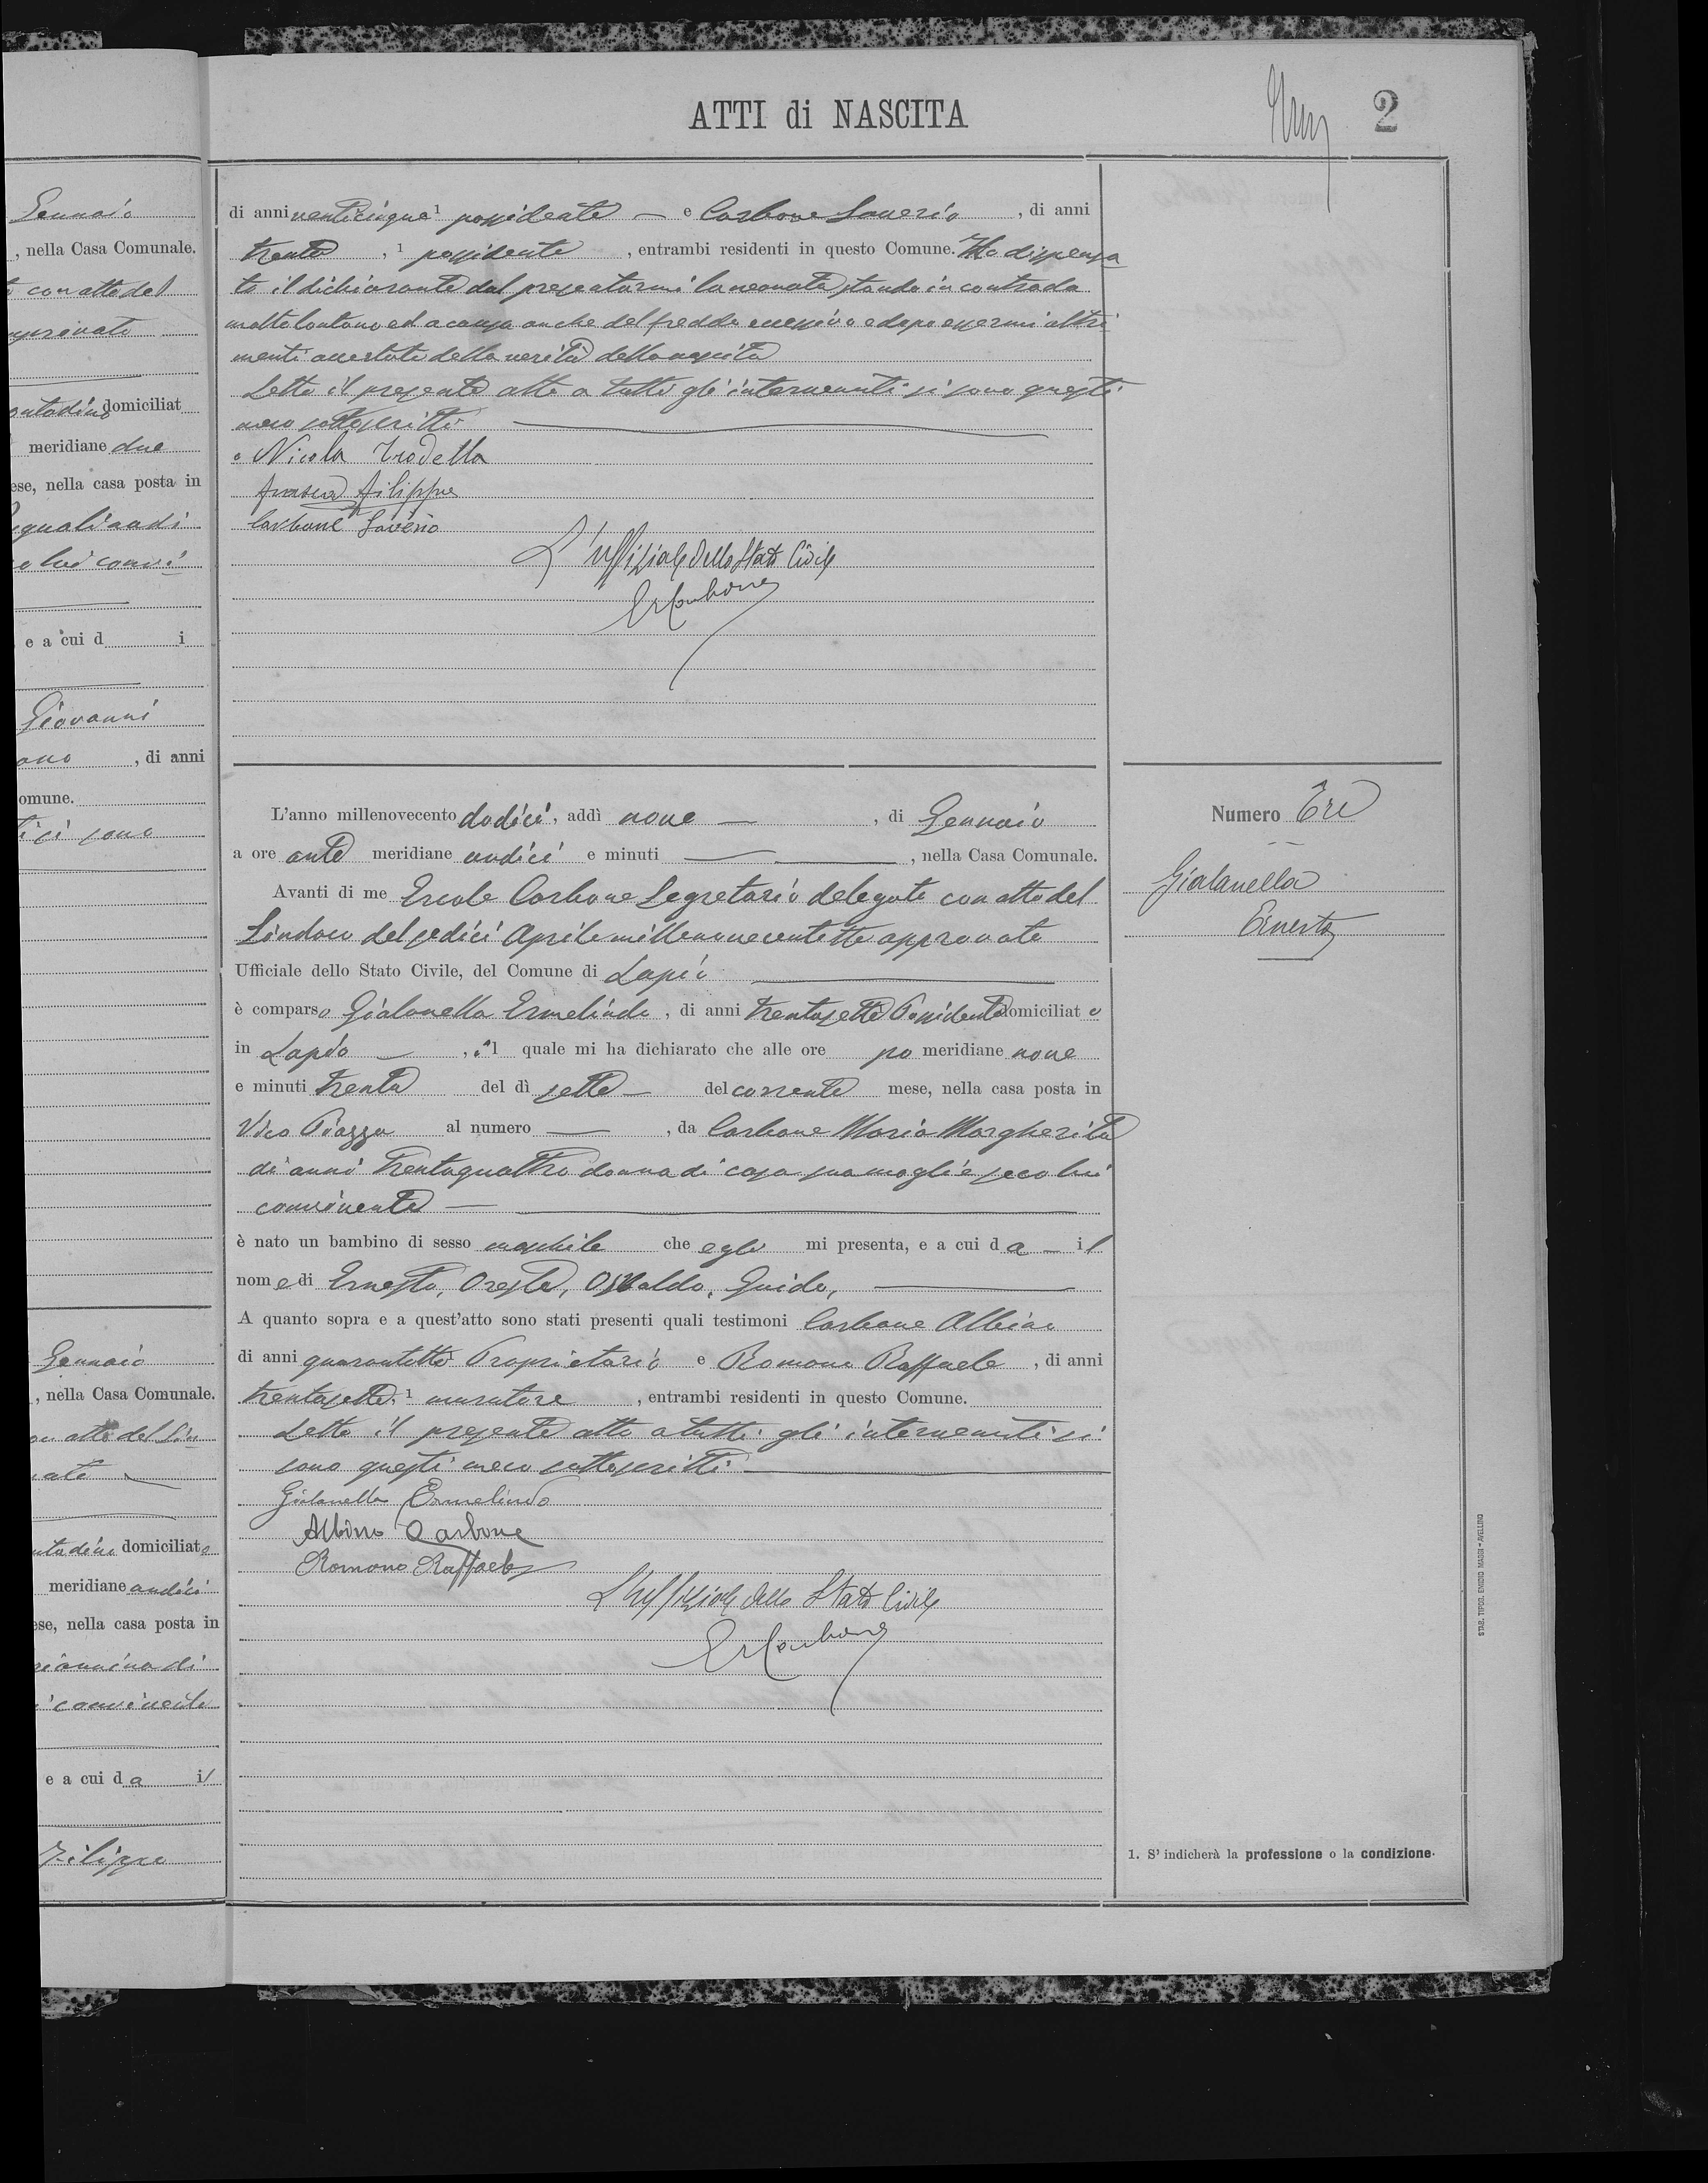 ATTI di NASCITA
2
Gennaio
, nella Casa Comunale.
con atto del
domiciliat
meridiane due
ese, nella casa posta in
e a cui d i
Giovanni
, di anni
omune.
Gennaio
, nella Casa Comunale.
atto del Sin
domiciliato
meridiane undici
ese, nella casa posta in
convivente
e a cui da il
Filippo
di anni venticinque 1 possidente — e Carbone Saverio , di anni
trenta , 1 possidente , entrambi residenti in questo Comune. Ho dispensa
to il dichiarante dal presentarmi la neonata stando in contrada
molto lontano ed a causa anche del freddo eccessivo e dopo essermi altri
menti accertato della verità della nascita
Letto il presente atto a tutti gli intervenuti si sono questi
meco sottoscritti
Nicola Trodella
Filippo
Carbone Saverio
L'uffiziale dello Stato Civile
ErCarbone
L'anno millenovecento dodici, addì nove — , di Gennaio
a ore ante meridiane undici e minuti — , nella Casa Comunale.
Avanti di me Ercole Carbone Segretario delegato con atto del
Sindaco del sedici Aprile millenovecentotto approvato
Ufficiale dello Stato Civile, del Comune di Lapio
è comparso Gialanella Ermelindo , di anni trentasette Possidente domiciliato
in Lapio — , il 1 quale mi ha dichiarato che alle ore po meridiane nove
e minuti trenta del dì sette — del corrente mese, nella casa posta in
Vico Piazza al numero — , da Carbone Maria Margherita
di anni trentaquattro donna di casa sua moglie seco lui
convivente —
è nato un bambino di sesso maschile che egli mi presenta, e a cui da — il
nome di Ernesto, Oreste, Osvaldo, Guido,
A quanto sopra e a quest'atto sono stati presenti quali testimoni Carbone Albino
di anni quarantotto 1 Proprietario e Romano Raffaele , di anni
trentasette, 1 muratore , entrambi residenti in questo Comune.
Letto il presente atto a tutti gli intervenuti si
sono questi meco sottoscritti
Gialanella Ermelindo
Albino Carbone
Romano Raffaele
L'Uffiziale dello Stato Civile
ErCarbone
Numero Tre
Gialanella
Ernesto
1. S' indicherà la professione o la condizione.
STAB. TIPOG. EMIDIO MAGGI - AVELLINO